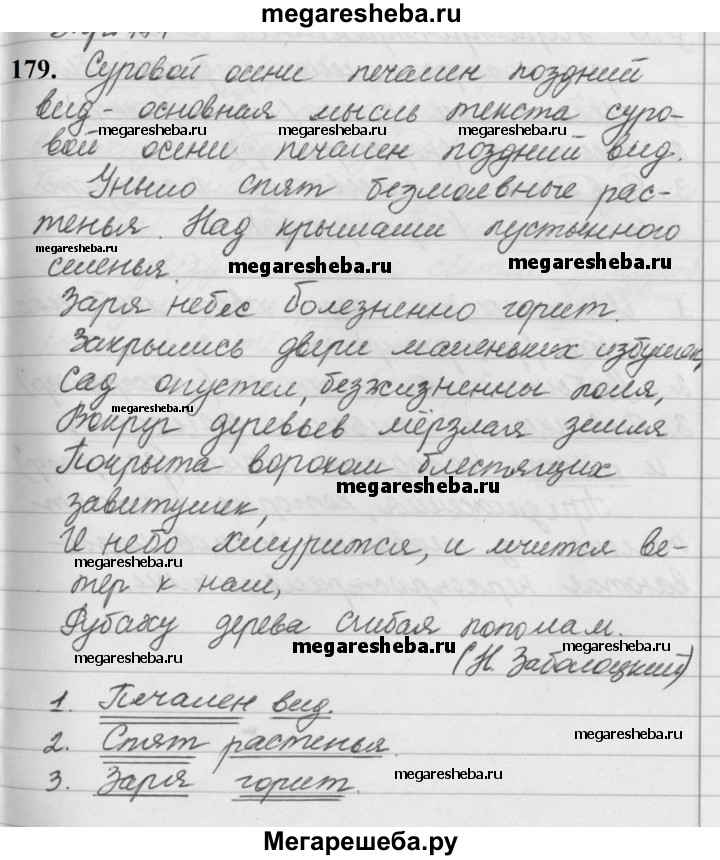 megaresheba.ru
179. Суровой осени печален поздний
вид - основная мысль текста суро-
megaresheba.ru megaresheba.ru megaresheba.ru
вой осени печален поздний вид.
Уныло спят безмолвные рас-
тенья. Над крышами пустынного
megaresheba.ru megaresheba.ru megaresheba.ru
селенья.
Заря небес болезненно горит.
Закрылись двери маленьких избушек,
Сад опустел, безжизненны поля,
megaresheba.ru
Вокруг деревьев мёрзлая земля
Покрыта ворохом блестящих
megaresheba.ru
завитушек,
И небо хмурится, и мчится ве-
megaresheba.ru
тер к нам,
Рубаху дерева сгибая пополам.
megaresheba.ru megaresheba.ru megaresheba.ru
(Н. Заболоцкий)
1. Печален вид.
2. Спят растенья.
3. Заря горит.
megaresheba.ru
Мегарешеба.ру